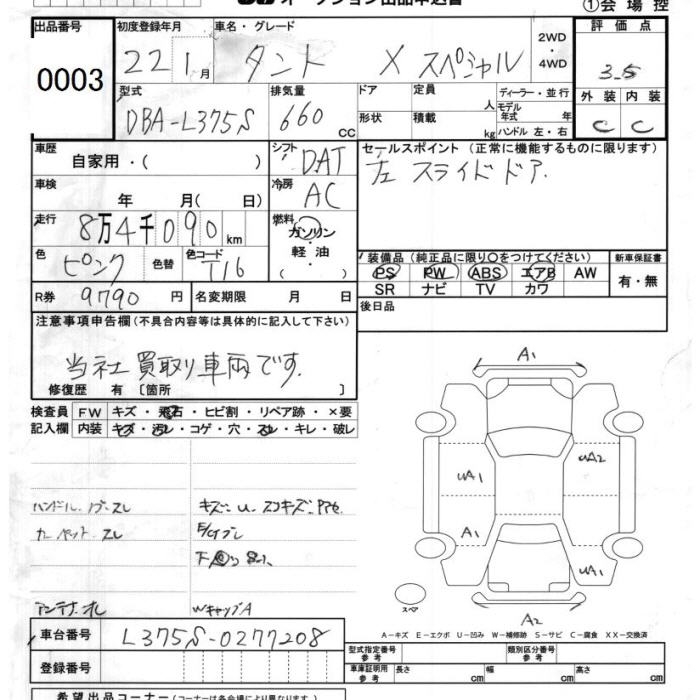 オークション出品申込書
①会場控
出品番号 0003
初度登録年月 22 1月
車名・グレード タント X スペシャル
2WD・4WD
評価点 3.5
外装 C 内装 C
型式 DBA-L375S
排気量 660 CC
ドア 形状
定員 人
積載 kg
ディーラー・並行
モデル年式 年式
ハンドル 左・右
車歴 自家用・( )
シフト DAT
セールスポイント (正常に機能するものに限ります)
左 スライドドア
車検 年 月( 日)
冷房 AC
走行 8万4千090km
燃料 ガソリン・軽油・
色 ピンク 色替 色コード T16
装備品 (純正品に限り○をつけてください)
新車保証書
PS PW ABS エアB AW
SR ナビ TV カワ
有・無
R券 9790円 名変期限 月 日
後日品
注意事項申告欄 (不具合内容等は具体的に記入して下さい)
当社買取り車両です.
修復歴 有 [箇所 ]
検査員記入欄
FW キズ・飛石・ヒビ割・リペア跡・×要
内装 キズ・汚レ・コゲ・穴・スレ・キレ・破レ
A1
UA2
UA1
A1
UA1
A2
スペア
ハンドル. ノブ. スレ
カーペット. スレ
アンテナ オレ
WキャップA
A-キズ E-エクボ U-凹み W-補修跡 S-サビ C-腐食 XX-交換済
車台番号 L375S-0277208
登録番号
型式指定番号 参考
類別区分番号 参考
車庫証明用 参考 長さ cm 幅 cm 高さ cm
希望出品コーナー (コーナーは各会場により異なります)